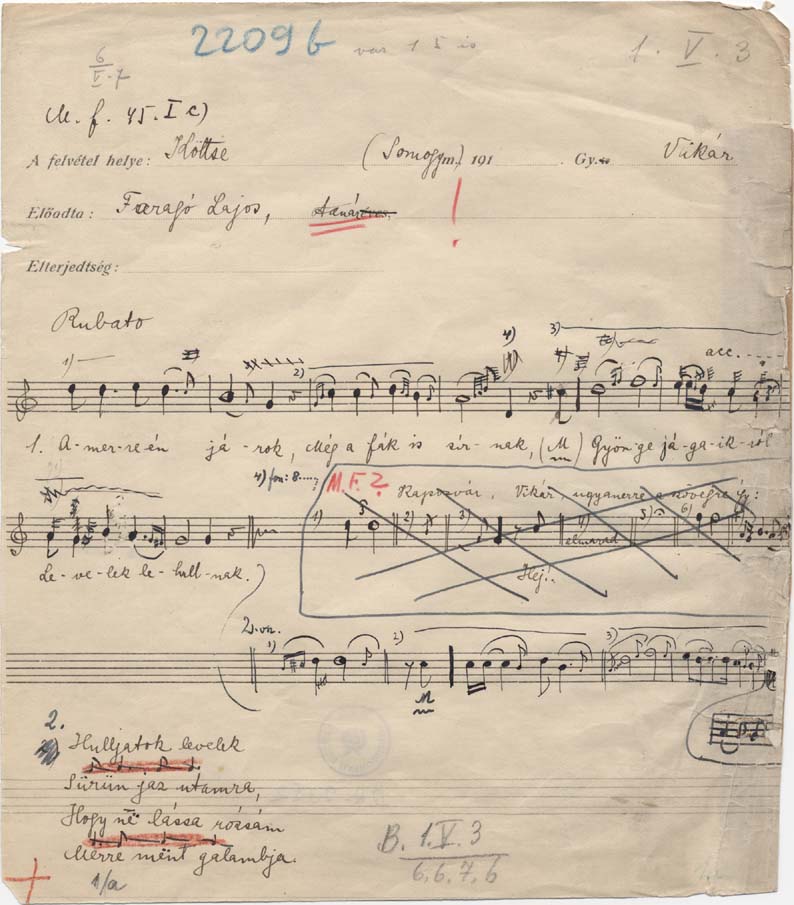 22096 var 15 is 1. V. 3
6
V. 7
M. f. 45. I c)
A felvétel helye: Köttse (Somogym.) 191 . Gy. Vikár
Előadta: Faragó Lajos, !
Elterjedtség:
Rubato
1) 2) 4) 3) acc.
1. A-mer-re én já-rok, Még a fák is sír-nak, (M) Gyön-ge já-ga-ik-ról
4) fon: 8.....? M.F.? Kaposvár, Vikár, ugyanerre a szövegre így:
1) 2) 3) 4) elmarad 5) 6)
Le-ve-lek le-hull-nak. Hej!
2.vn.
1) 2) 3)
M
2.
Hulljatok levelek
Sürün jaz utamra,
Hogy në lássa rózsám
Mërre mënt galambja.
1/a
B. 1. V. 3
6, 6, 7, 6